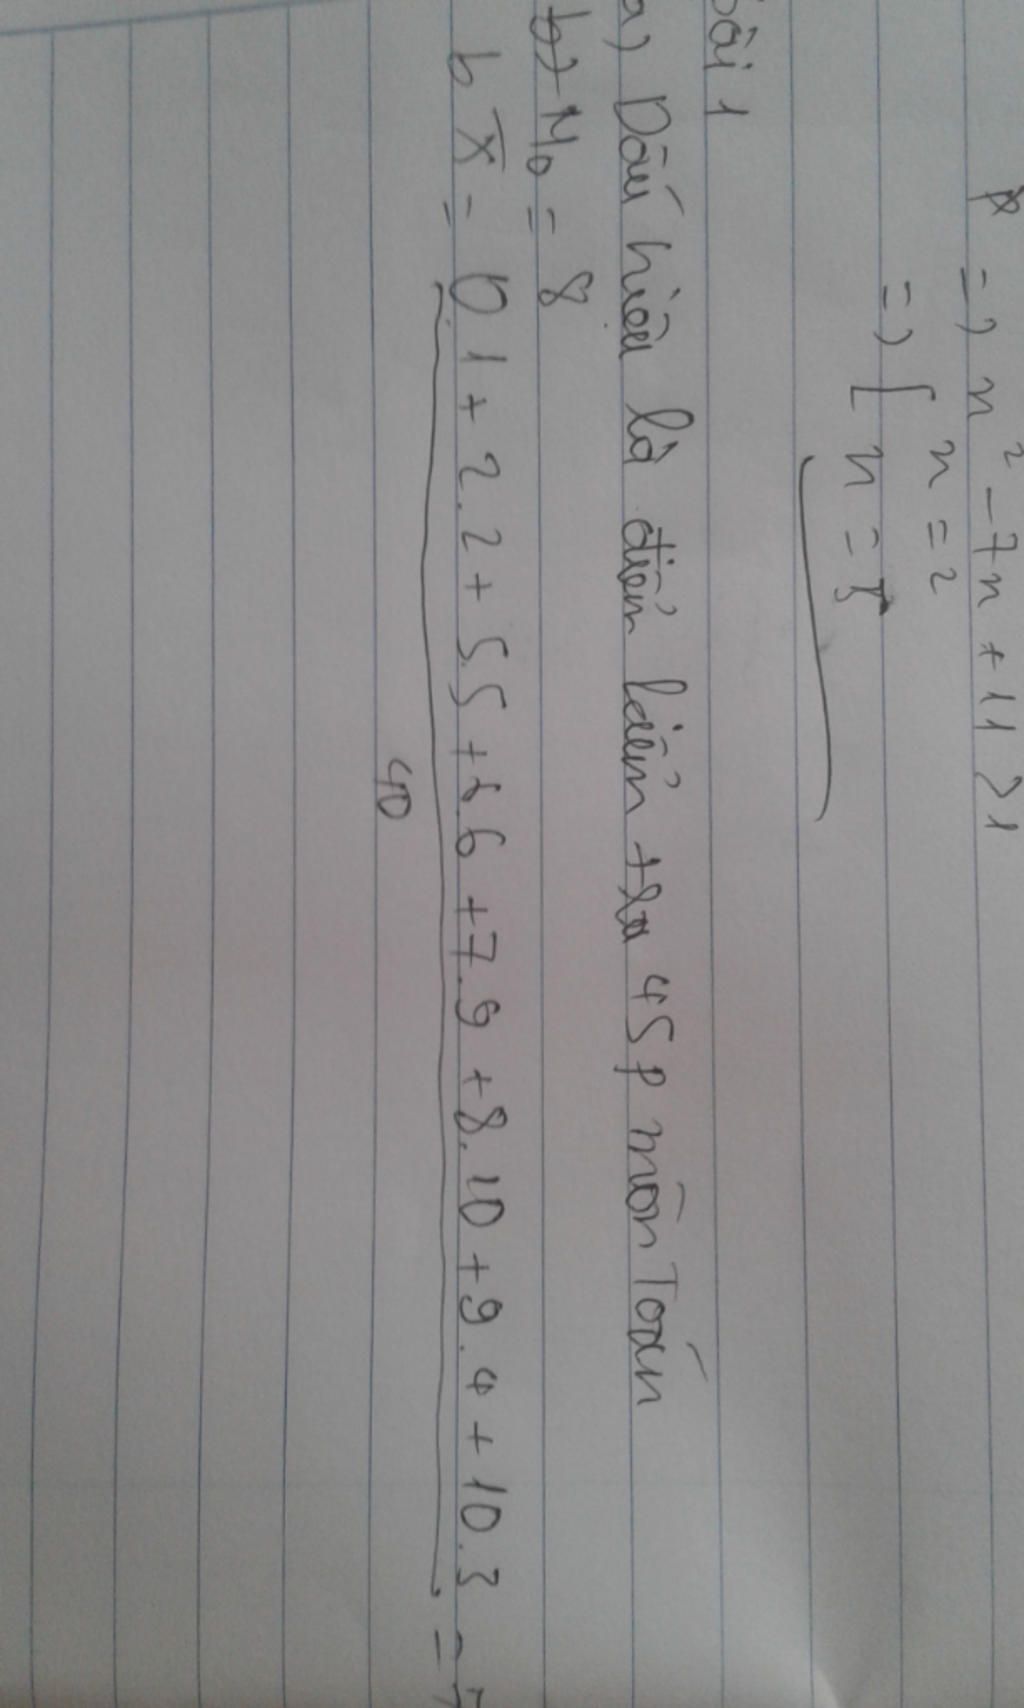 => n² - 7n + 11 > 1
=> [ n = 2
n = 5
Bài 1
a) Dấu hiệu là điểm kiểm tra 45p môn Toán
b) M₀ = 8
b X̄ = 0.1 + 2.2 + 5.5 + 6.6 + 7.9 + 8.10 + 9.4 + 10.3 =
40